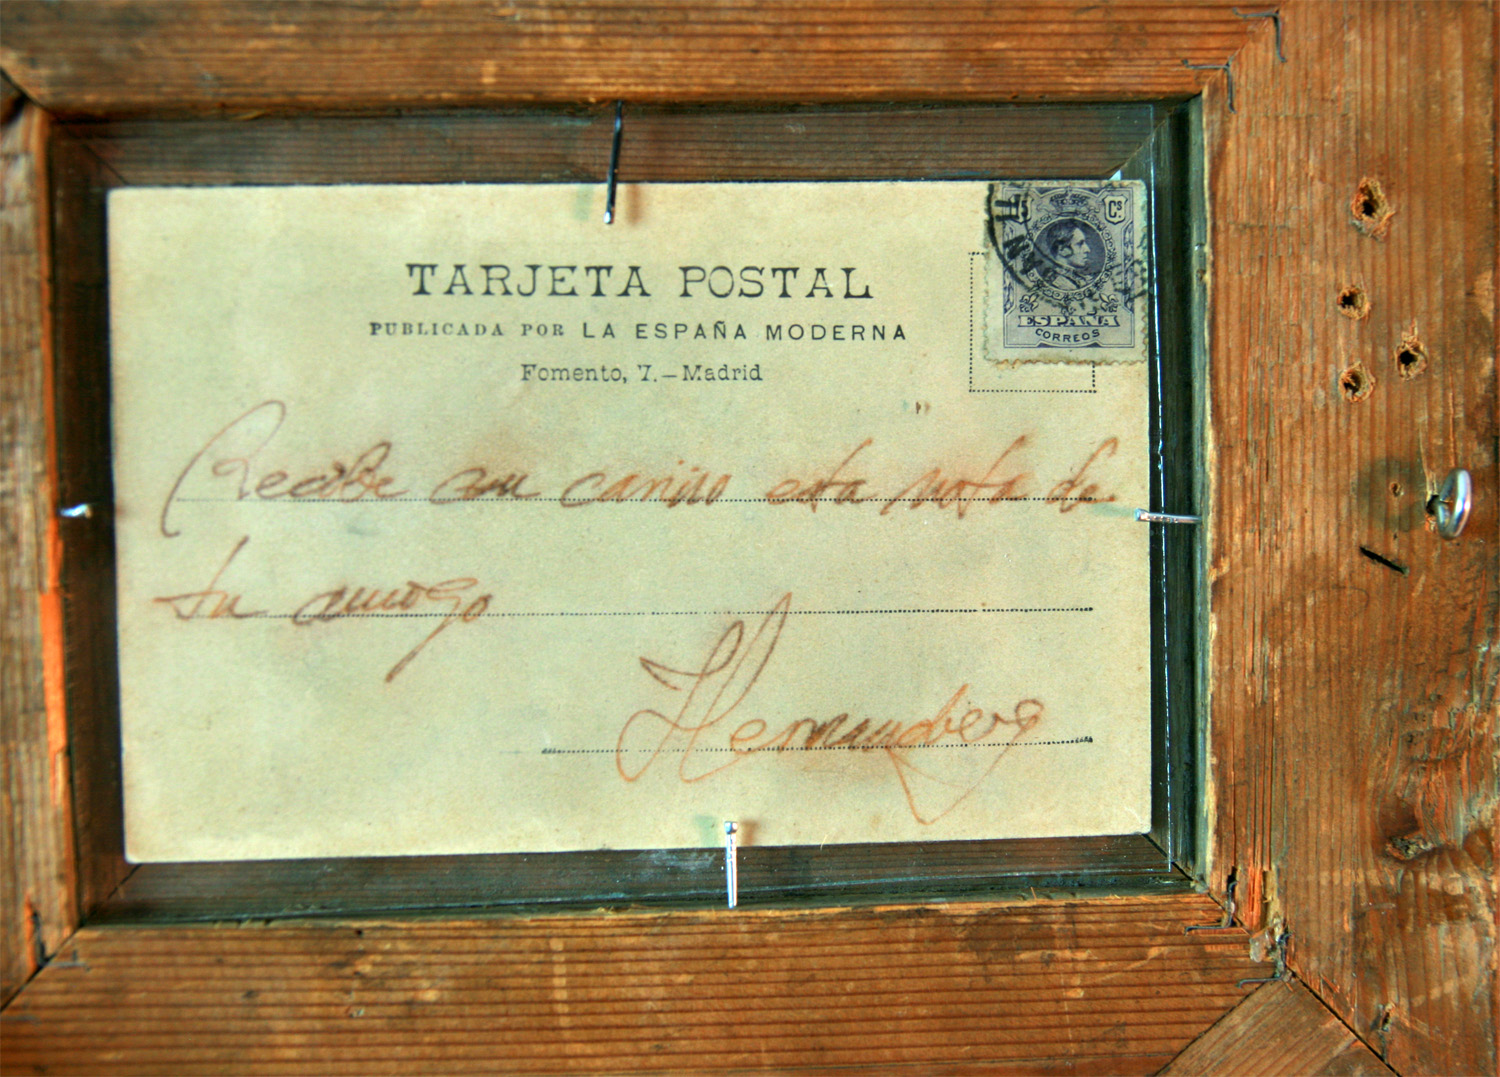 TARJETA POSTAL
PUBLICADA POR LA ESPAÑA MODERNA
Fomento, 7.—Madrid
15 Cs.
ESPAÑA
CORREOS
Recibe con cariño esta nota de
tu amigo